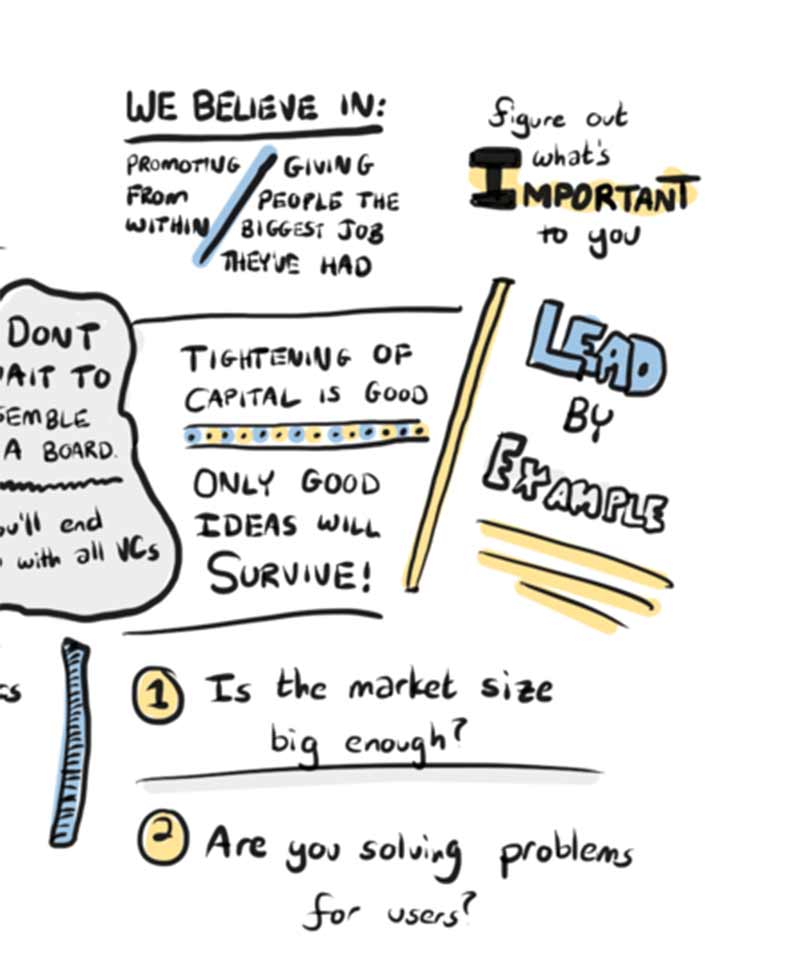 WE BELIEVE IN:
PROMOTING
FROM
WITHIN
GIVING
PEOPLE THE
BIGGEST JOB
THEY'VE HAD
figure out
what's
IMPORTANT
to you
DONT
AIT TO
SEMBLE
A BOARD.
ou'll end
with all VCs
TIGHTENING OF
CAPITAL IS GOOD
ONLY GOOD
IDEAS WILL
SURVIVE!
LEAD
BY
EXAMPLE
1 Is the market size
big enough?
2 Are you solving problems
for users?